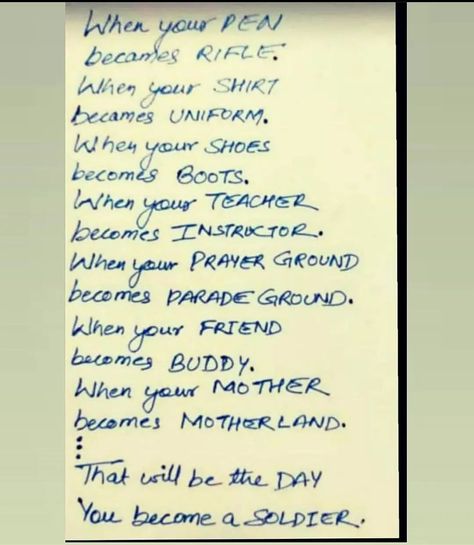 When your PEN
becames RIFLE.
When your SHIRT
becames UNIFORM.
When your SHOES
becomes BOOTS.
When your TEACHER
becomes INSTRUCTOR.
When your PRAYER GROUND
becomes PARADE GROUND.
When your FRIEND
becomes BUDDY.
When your MOTHER
becomes MOTHERLAND.
⋮
That will be the DAY
You become a SOLDIER.